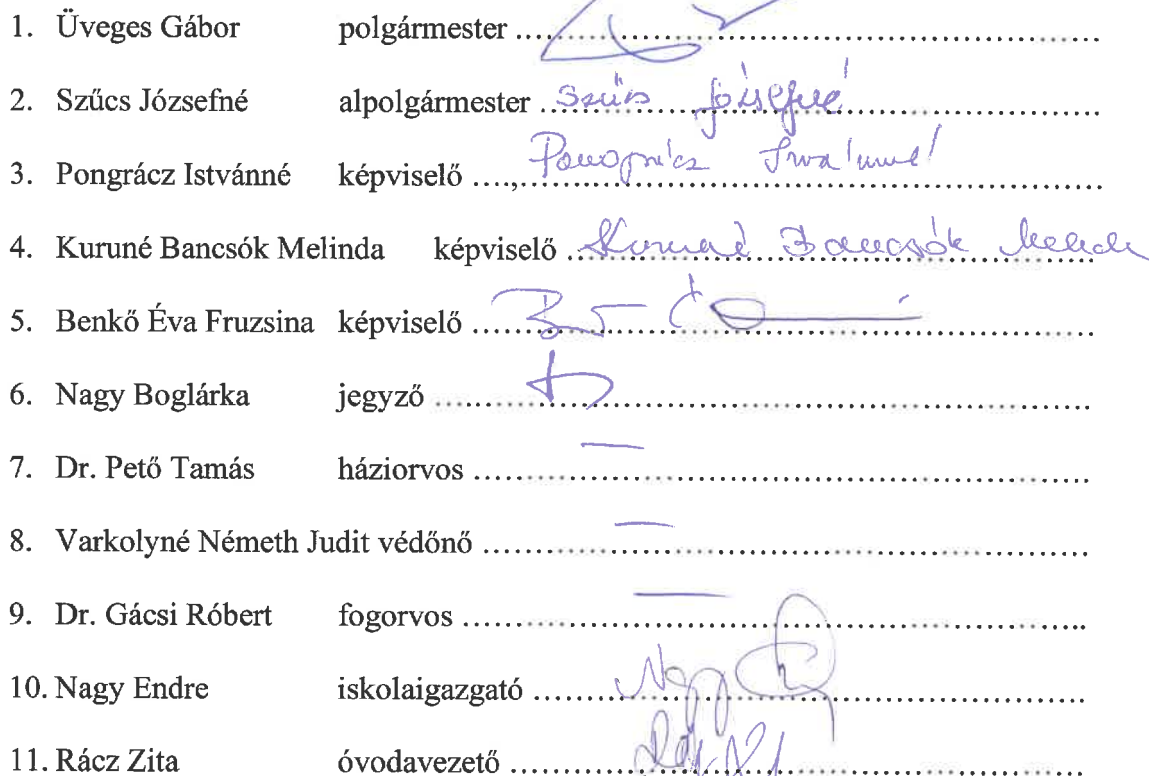 1. Üveges Gábor polgármester ..........
2. Szűcs Józsefné alpolgármester .......... Szűcs Józsefné
3. Pongrácz Istvánné képviselő .......... Pongrácz Istvánné
4. Kuruné Bancsók Melinda képviselő .......... Kuruné Bancsók Melinda
5. Benkő Éva Fruzsina képviselő ..........
6. Nagy Boglárka jegyző ..........
7. Dr. Pető Tamás háziorvos .......... —
8. Varkolyné Németh Judit védőnő .......... —
9. Dr. Gácsi Róbert fogorvos .......... —
10. Nagy Endre iskolaigazgató .......... Nagy
11. Rácz Zita óvodavezető ..........